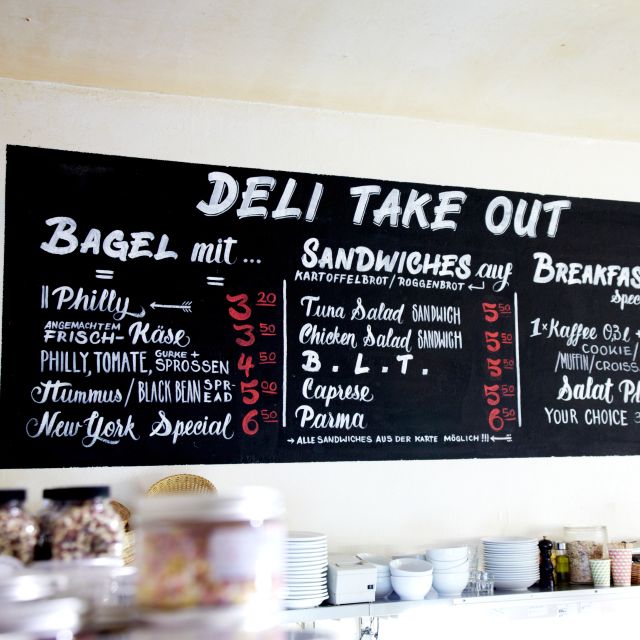 DELI TAKE OUT
BAGEL mit ...
Philly 3 20
ANGEMACHTEM FRISCH-Käse 3 50
PHILLY, TOMATE, GURKE + SPROSSEN 4 50
Hummus/BLACK BEAN SPR-EAD 5 00
New York Special 6 50
SANDWICHES auf
KARTOFFELBROT/ROGGENBROT
Tuna Salad SANDWICH 5 50
Chicken Salad SANDWICH 5 50
B.L.T. 5 50
Caprese 5 50
Parma 6 50
ALLE SANDWICHES AUS DER KARTE MÖGLICH !!!
BREAKFAS
Spec
1x Kaffee 0,3 l
COOKIE/
/MUFFIN/CROISS
Salat Pl
YOUR CHOICE 3